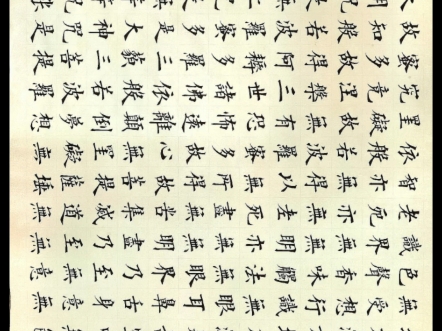 無受想行識無眼耳鼻舌身意無
色聲香味觸法無眼界乃至無意
識界無無明亦無無明盡乃至無
老死亦無老死盡無苦集滅道無
智亦無得以無所得故菩提薩埵
依般若波羅蜜多故心無罣礙無
罣礙故無有恐怖遠離顛倒夢想
究竟涅槃三世諸佛依般若波羅
蜜多故得阿耨多羅三藐三菩提
故知般若波羅蜜多是大神咒是